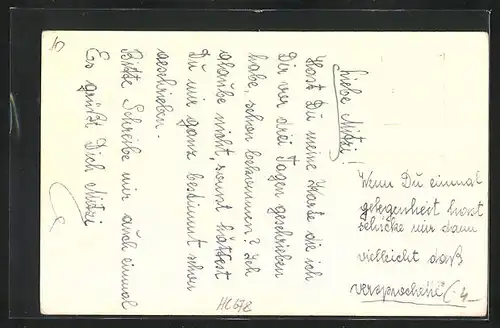 Liebe Mitzi!
Hast Du meine Karte die ich
Dir vor drei Tagen geschrieben
habe, schon bekommen? Ich
glaube nicht, sonst hättest
Du mir ganz bestimmt schon
geschrieben.
Bitte Schreibe mir auch einmal
Es grüßt Dich Mitzi
Wenn Du einmal
gelegenheit hast
schicke mir dann
vielleicht daß
versprochene
HC672